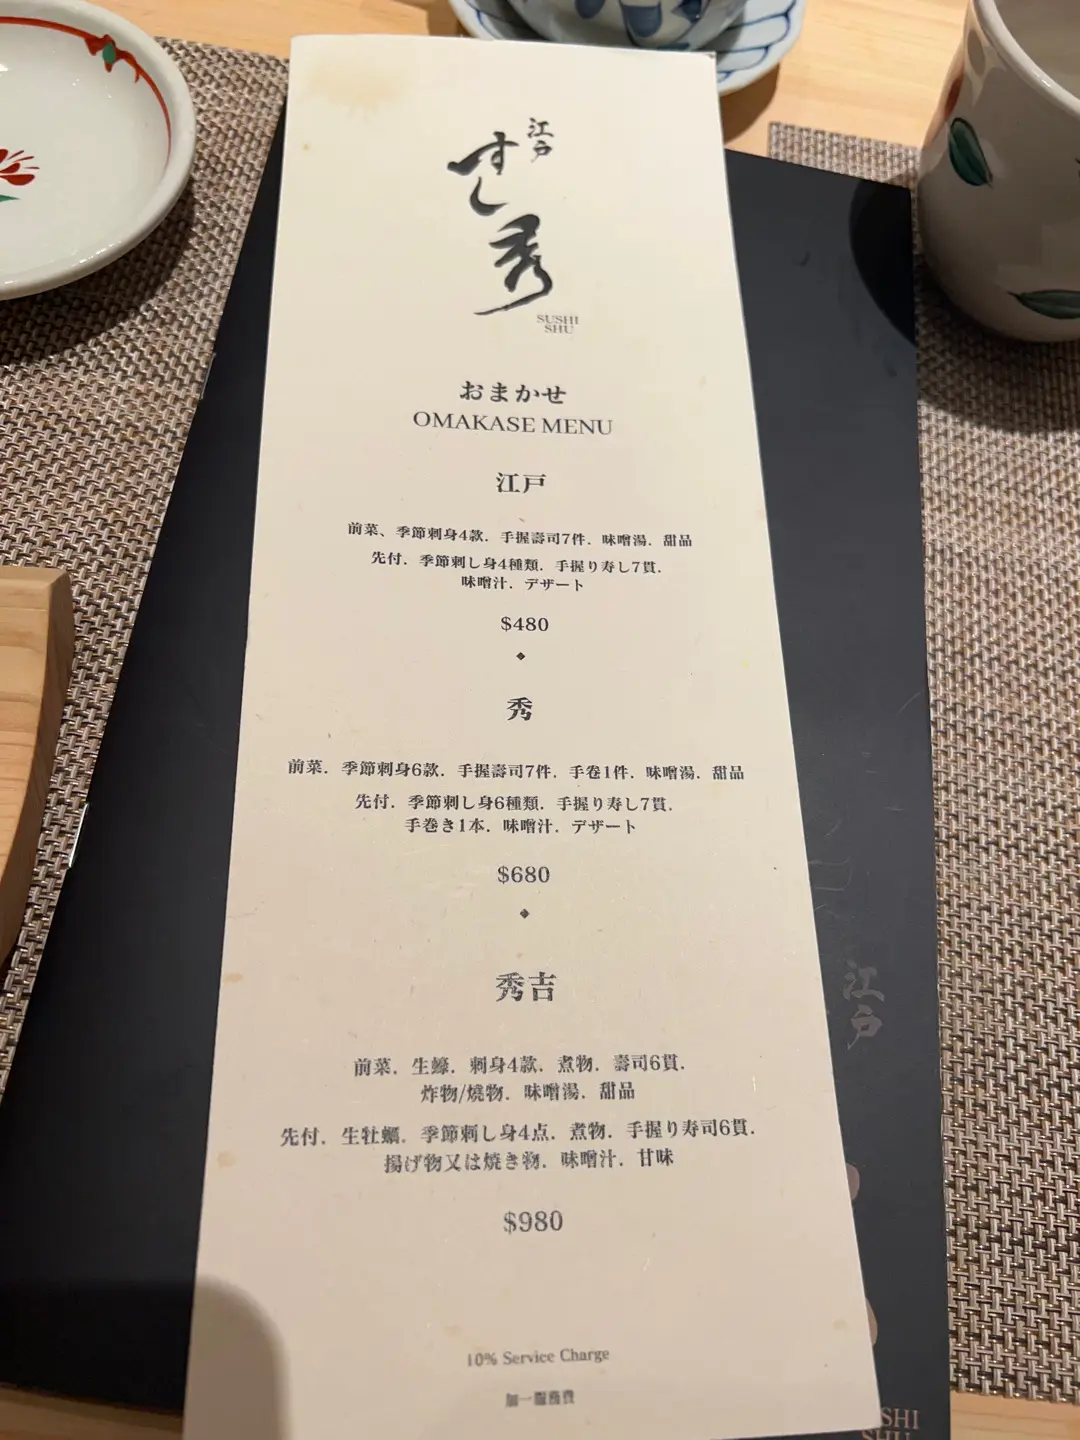 江戸
すし
秀
SUSHI
SHU
おまかせ
OMAKASE MENU
江戸
前菜、季節刺身4款．手握壽司7件．味噌湯．甜品
先付．季節刺し身4種類．手握り寿し7貫．
味噌汁．デザート
$480
秀
前菜．季節刺身6款．手握壽司7件．手卷1件．味噌湯．甜品
先付．季節刺し身6種類．手握り寿し7貫．
手巻き1本．味噌汁．デザート
$680
秀吉
前菜．生蠔．刺身4款．煮物．壽司6貫．
炸物/燒物．味噌湯．甜品
先付．生牡蠣．季節刺し身4点．煮物．手握り寿司6貫．
揚げ物又は焼き物．味噌汁．甘味
$980
10% Service Charge
加一服務費
江戸
SHI
SHU